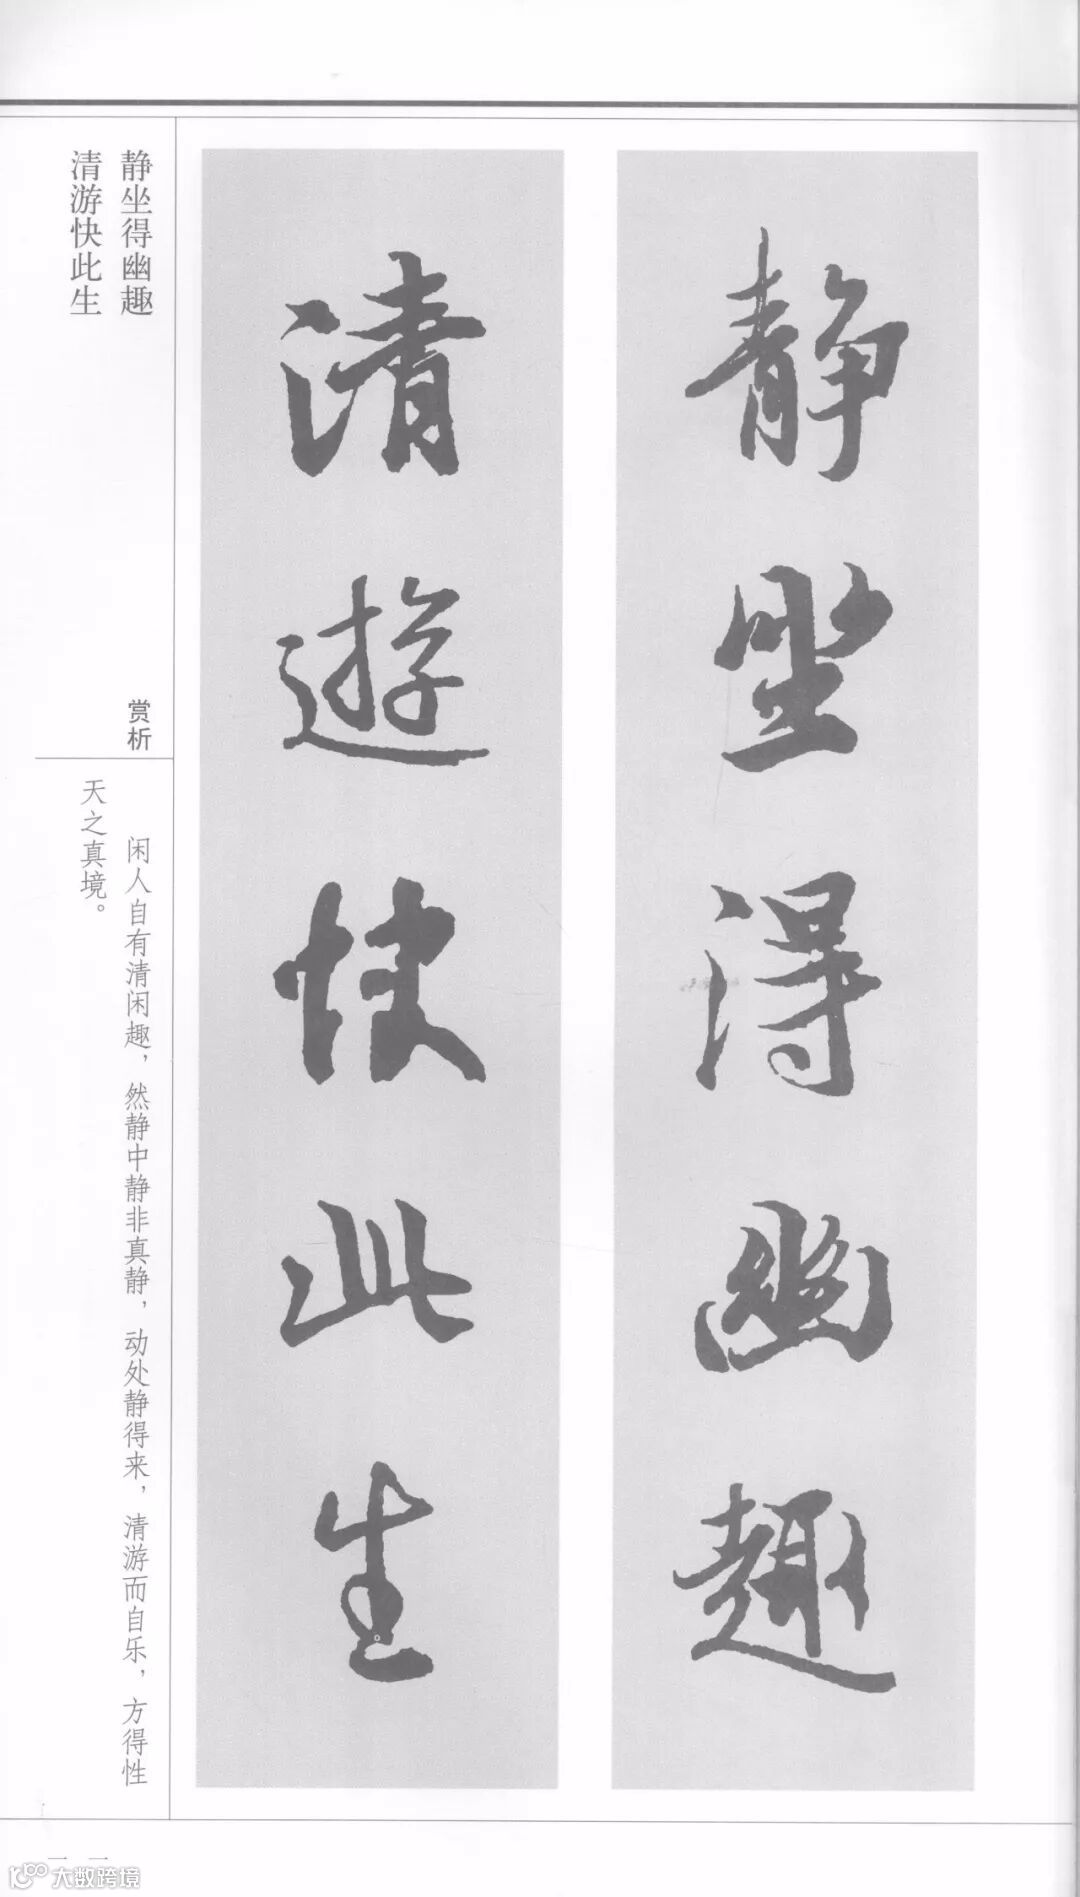 静坐得幽趣
清遊快此生
静坐得幽趣
清游快此生
赏析
闲人自有清闲趣，然静中静非真静，动处静得来，清游而自乐，方得性
天之真境。
一一
大数跨境